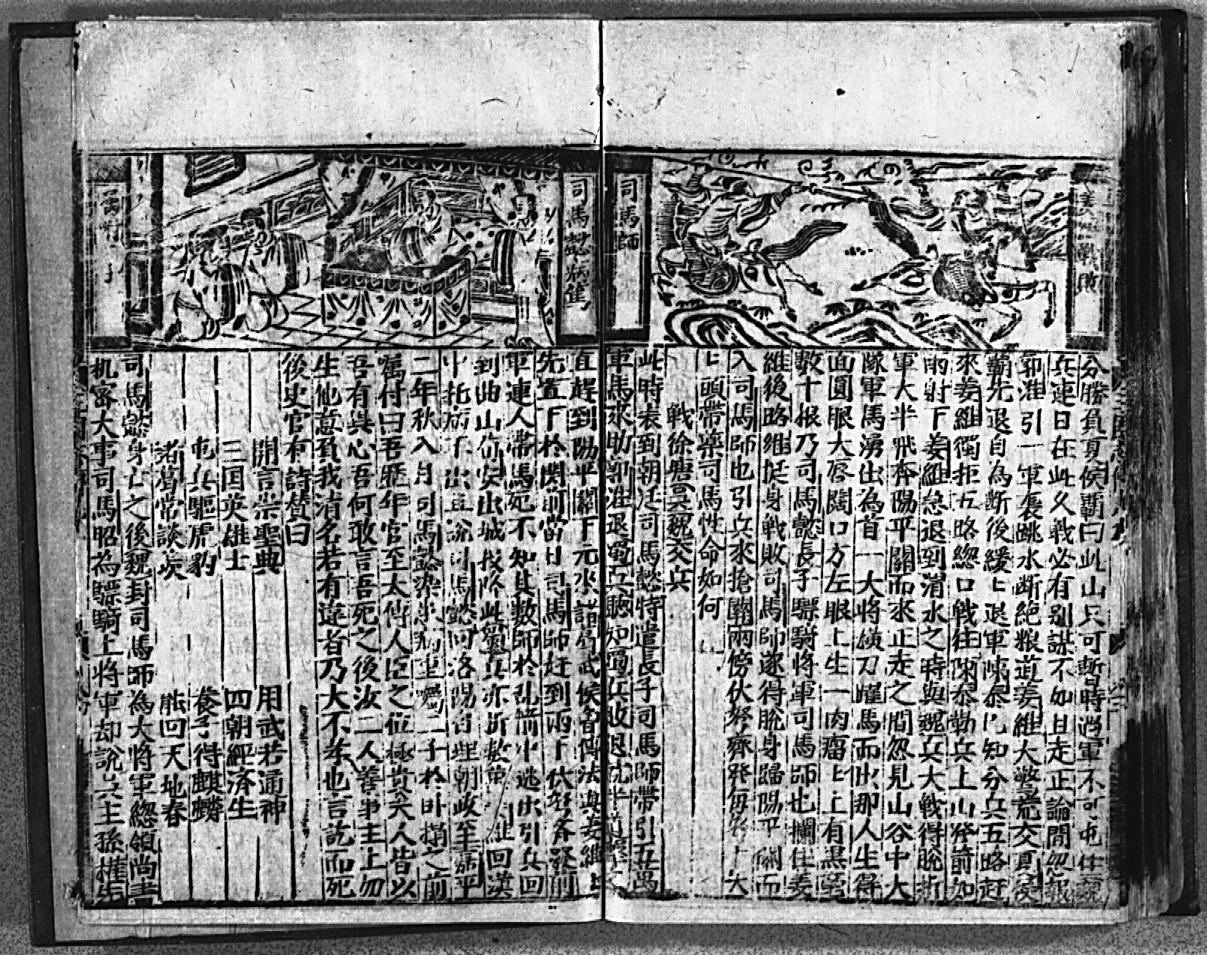 司馬師
分勝負夏侯霸曰此山只可暫時遇軍不可屯住
兵連日在此久戰必有别謀不如且走正論間忽報
郭淮引一軍襲跳水斷絶粮道姜維大驚荒交夏侯
霸先退自為断後緩上退軍陳泰已知分兵五路赶
來姜維獨拒五路總口戰住陳泰勒兵上山發箭如
雨射下姜維急退到渭水之時與魏兵大戰得脫折
軍大半飛奔陽平關而來正走之間忽見山谷中大
隊軍馬湧出為首一大將横刀躍馬而出那人生得
面圓眼大唇闊口方左眼上生一肉瘤上上有黑毫
數十根乃司馬懿長子驃騎將軍司馬師也攔住姜
維後路維挺身戰敗司馬師遂得脫身歸陽平關而
入司馬師也引兵來搶關兩傍伏弩齊發每弩十大
七頭帶藥司馬性命如何
戰徐塘吳魏交兵
此時表到朝廷司馬懿特遣長子司馬師帶引五萬
車馬來助郭淮退蜀兵聽知蜀兵敗退
司馬懿病篤
直趕到陽平關下元來諸葛武侯曾傳法與姜維上
先置下於関前當日司馬師赶到兩下伏弩齊發前
軍連人帶馬死不知其數師於乱箭中逃出引兵回
到曲山
中托病不出且說司馬懿回洛陽自理朝政至嘉平
二年秋八月司馬懿染病重囑二子於卧榻之前
囑付曰吾歷年官至太傅人臣之位極貴矣人皆以
吾有異心吾何敢言吾死之後汝二人善事主上勿
生他意負我清名若有違者乃大不孝也言訖而死
後史官有詩賛曰
開言崇聖典 用武若通神
三国英雄士 四朝經済生
屯兵驅虎豹 養子得麒麟
諸葛常談羨 能回天地春
司馬懿身亡之後魏封司馬師為大將軍總領尚書
机密大事司馬昭為驃騎上將軍却說吳主孫權先